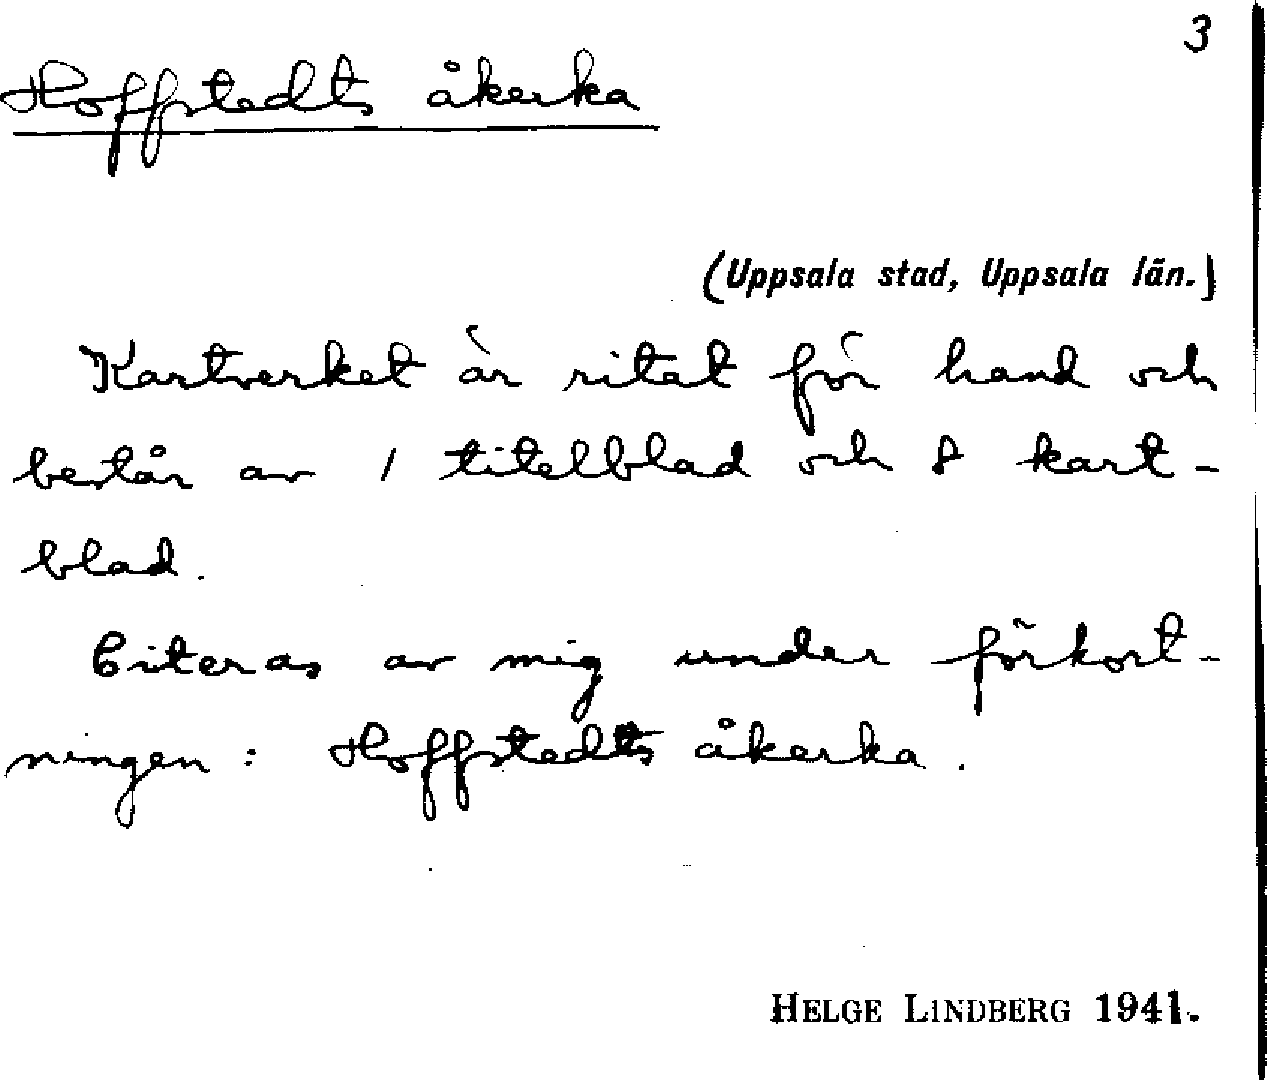 3
Hoffstedts åkerka
(Uppsala stad, Uppsala län.)
Kartverket är ritat för hand och
består av 1 titelblad och 8 kart-
blad.
Citeras av mig under förkort-
ningen: Hoffstedts åkerka.
HELGE LINDBERG 1941.